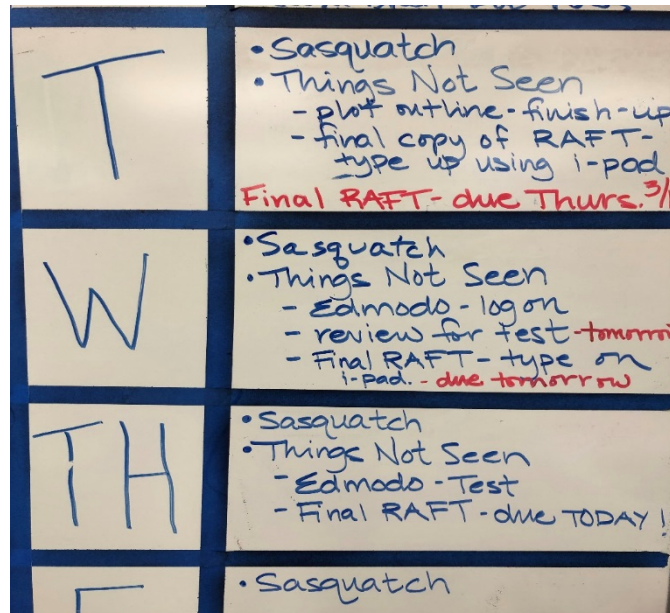 T
• Sasquatch
• Things Not Seen
- plot outline - finish-up
- final copy of RAFT -
type up using i-pad
Final RAFT - due Thurs. 3/
W
• Sasquatch
• Things Not Seen
- Edmodo - log on
- review for test - tomorrow
- Final RAFT - type on
i-pad. - due tomorrow
TH
• Sasquatch
• Things Not Seen
- Edmodo - Test
- Final RAFT - due TODAY!
• Sasquatch